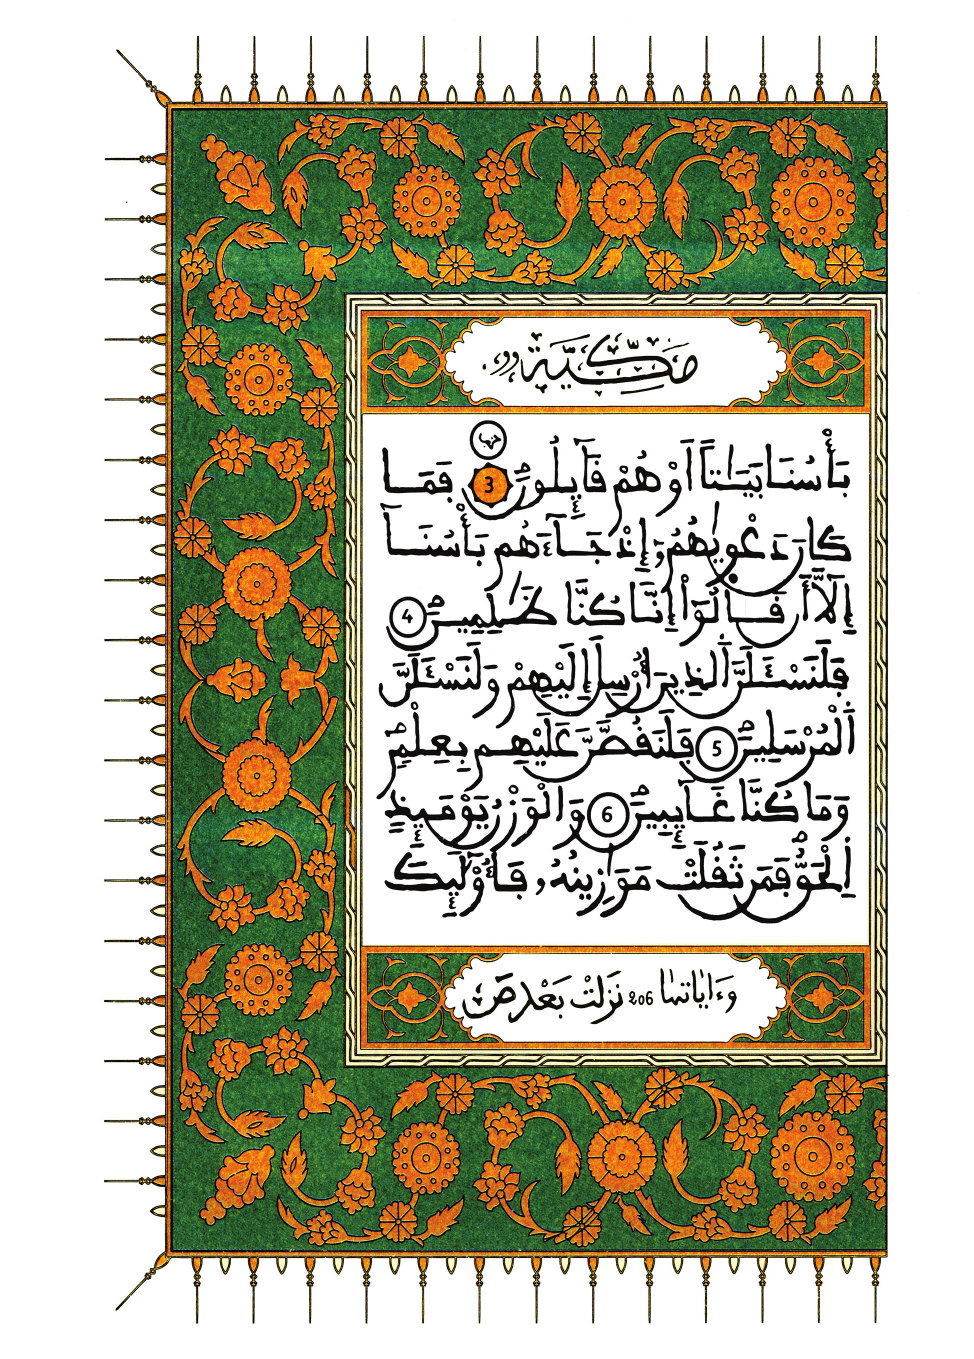 مَكِّيَّة
بَأْسُنَا بَيَٰتاً اَوْ هُمْ قَآئِلُونَ 3 فَمَا
كَانَ دَعْوٜيٰهُمُۥٓ إِذْ جَآءَهُم بَأْسُنَآ
إِلَّآ أَن قَالُوٓاْ إِنَّا كُنَّا ظَٰلِمِينَ 4
فَلَنَسْـَٔلَنَّ اَ۬لذِينَ أُرْسِلَ إِلَيْهِمْ وَلَنَسْـَٔلَنَّ
اَ۬لْمُرْسَلِينَ 5 فَلَنَقُصَّنَّ عَلَيْهِم بِعِلْمٖ
وَمَا كُنَّا غَآئِبِينَ 6 وَالْوَزْنُ يَوْمَئِذٍ
اِ۬لْحَقُّ فَمَن ثَقُلَتْ مَوَٰزِينُهُۥ فَأُوْلَٰٓئِكَ
وءاياتها 206 نزلت بعد ص